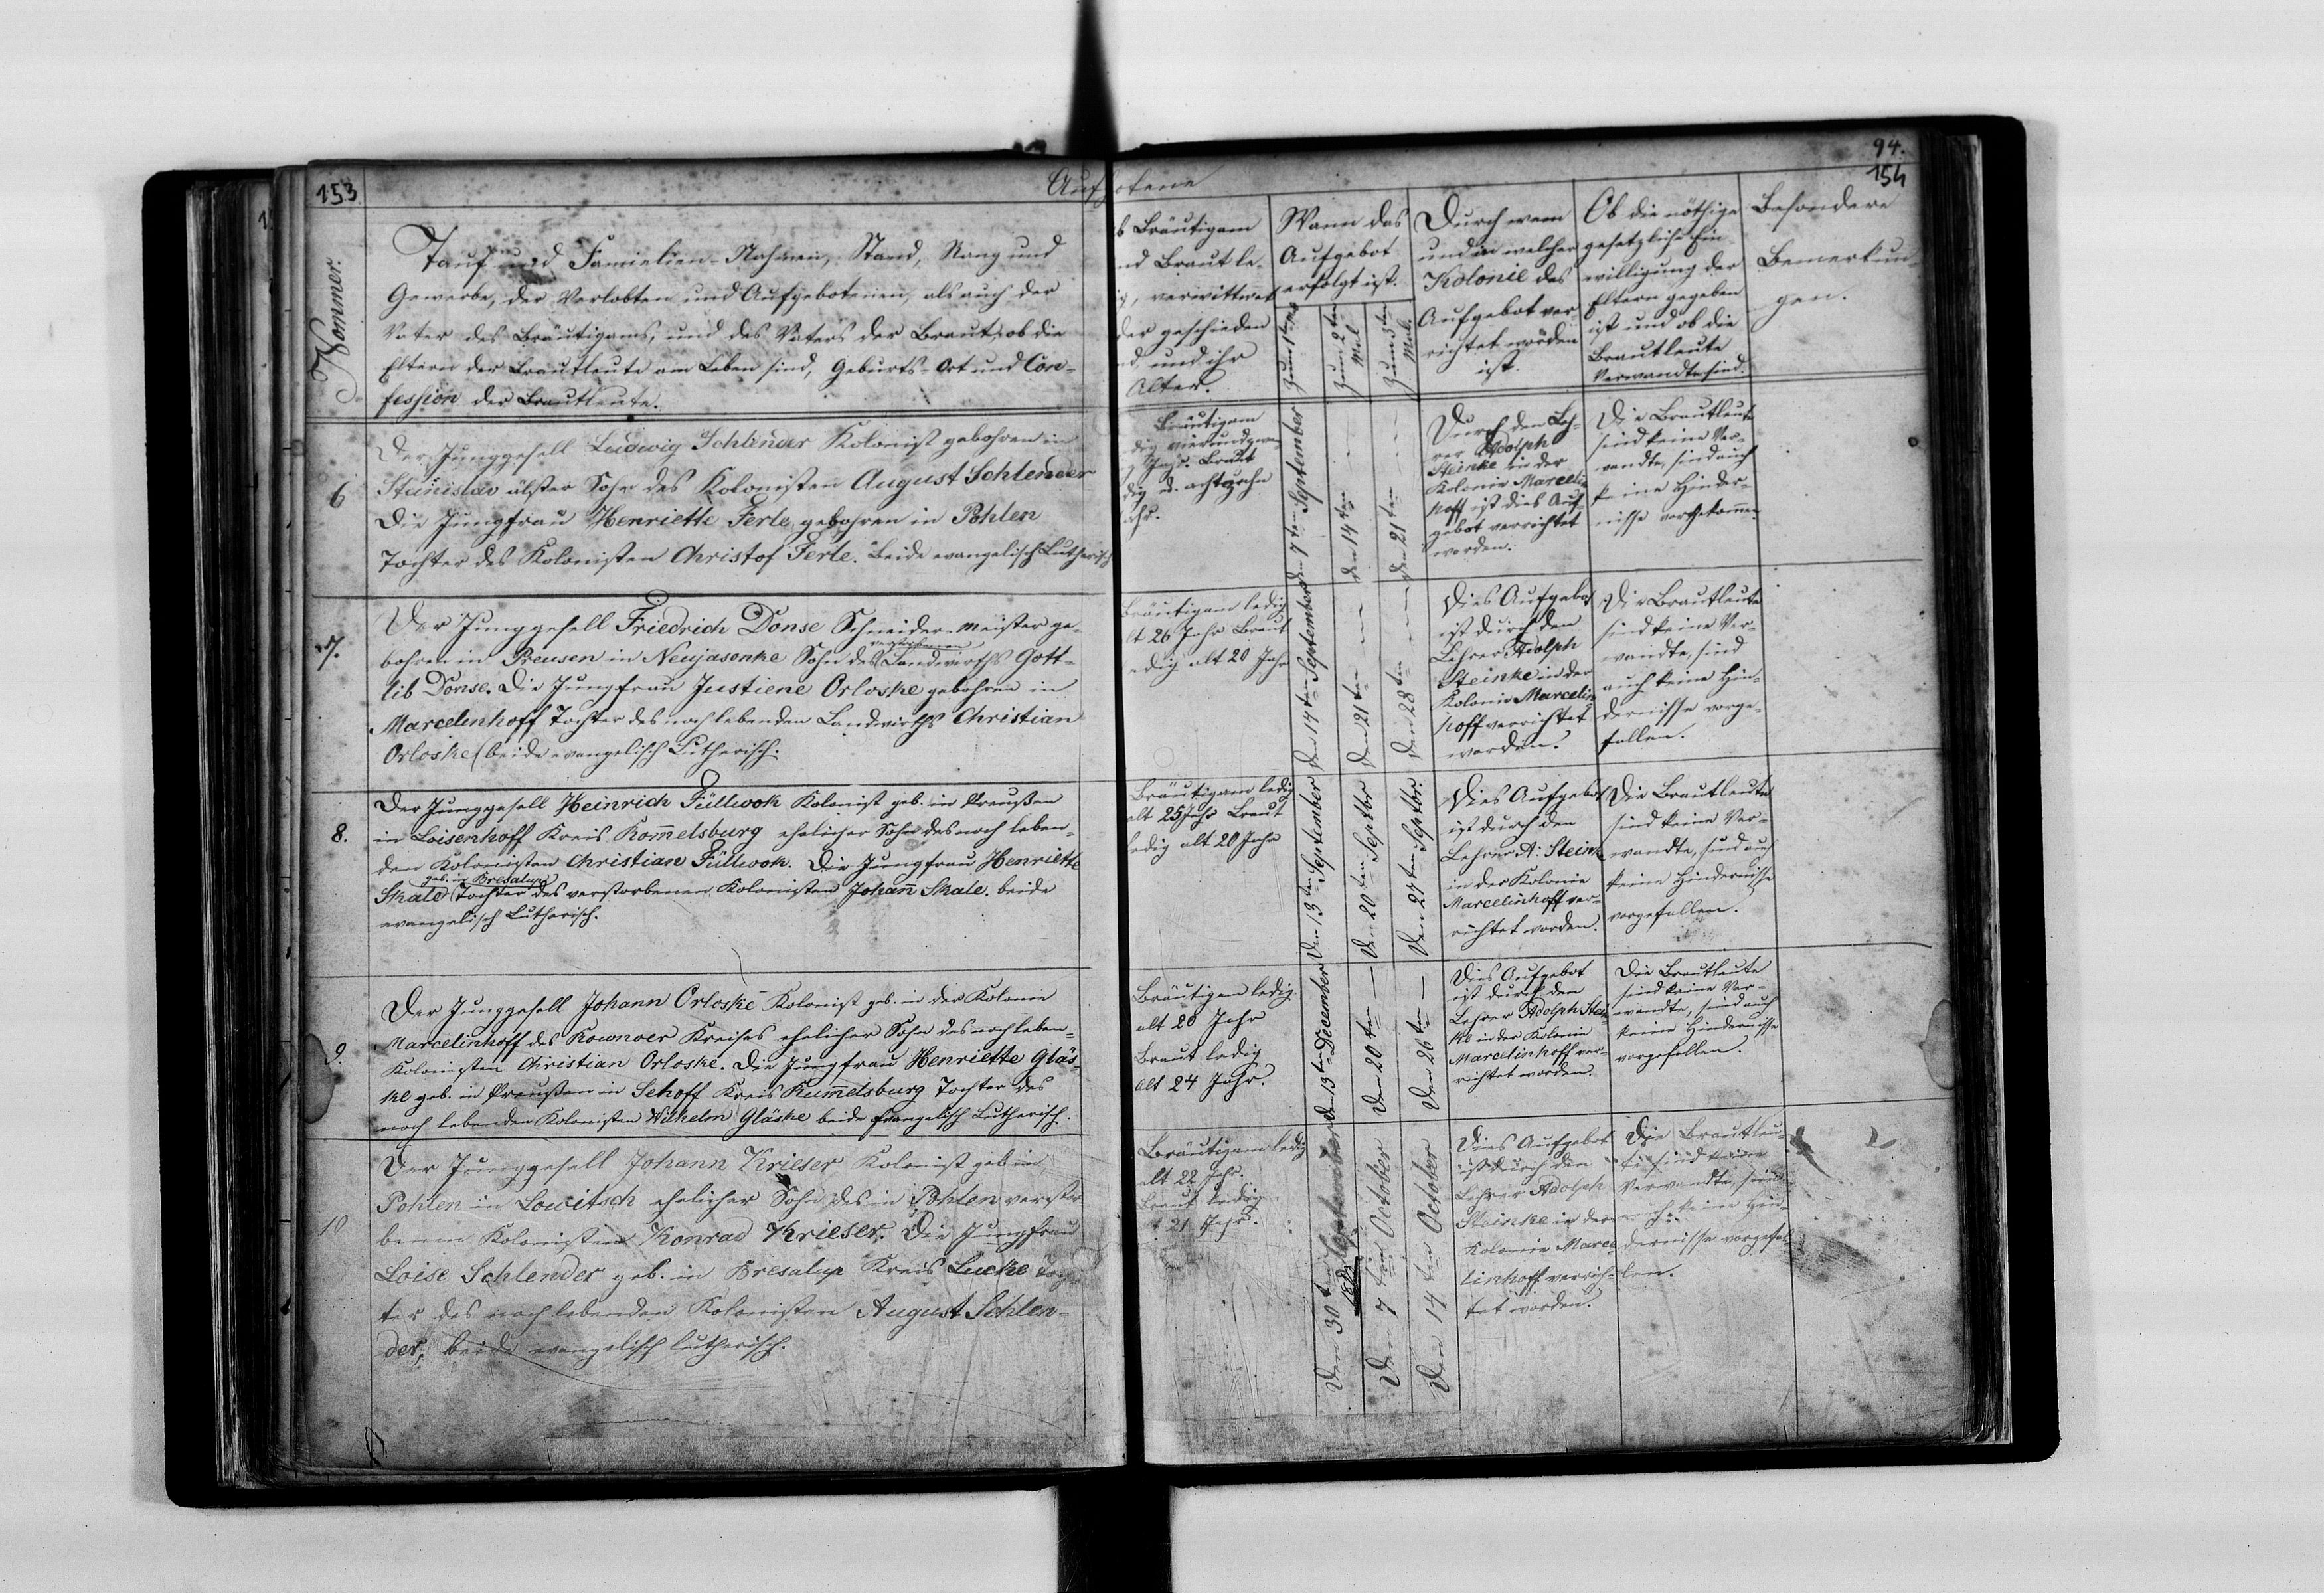 153
Aufgebotene
94.
154
Nommer.
Tauf und Famielien-Nahmen, Stand, Rang und
Gewerbe, der Verlobten und Aufgebotenen, als auch der
Vater des Bräutigams, und des Vaters der Braut, ob die
Eltern der Brautleute am Leben sind, Geburts-Ort und Con-
fession der Brautleute.
b Bräutigam
nd Braut le-
ig, verwittwet
der geschieden
nd, und ihr
Alter.
Wann das
Aufgebot
erfolgt ist.
Zum 1ten Mal
Zum 2ten
Mal
Zum 3ten
Mal.
Durch wem
und in welcher
Kolonie das
Aufgebot ver-
richtet worden
ist.
Ob die nöthige
gesetzliche Ein-
willigung der
Eltern gegeben
ist und ob die
Brautleute
Verwandte sind.
Besondere
Bemerkun-
gen.
6
Der Junggesell Ludwig Schlinder Kolonist gebohren in
Stanislav älster Sohn des Kolonisten August Schlender
Die Jungfrau Henriette Ferle gebohren in Pohlen
Tochter des Kolonisten Christof Ferle. Beide evangelisch Lutherisch
Bräutigam
dig vierundzwan-
g Jahr. Braut
dig u. achtzehn
ahr.
den 7ten September
den 14ten
den 21ten
Durch den Leh-
rer Adolph
Steinke in der
Kolonie Marcelin
hoff ist dies Auf-
gebot verrichtet
worden.
Die Brautleute
sind keine Ver-
wandte, sind auch
keine Hinder-
nisse vorgekommen.
7.
Der Junggesell Friedrich Donse Schneider-meister ge-
bohren in Preusen in Neujasenke Sohn des verstorbenen Landwirths Gott-
lib Donse. Die Jungfrau Justiene Orloske gebohren in
Marcelinhoff Tochter des noch lebenden Landwirths Christian
Orloske (beide evangelisch Lutherisch.
Bräutigam ledig
lt 26 Jahr Braut
edig alt 20 Jahr
den 14ten September
den 21ten
den 28ten
Dies Aufgebot
ist durch den
Lehrer Adolph
Steinke in der
Kolonie Marcelin
hoff verrichtet
worden.
Die Brautleute
sind keine Ver-
wandte, sind
auch keine Hin-
dernisse vorge-
fallen.
8.
Der Junggesell Heinrich Füllwok Kolonist geb. in Preußen
in Loisenhoff Kreis Kom̄elsburg ehelicher Sohn des noch leben-
den Kolonisten Christian Füllwok. Die Jungfrau Henriette
Skale geb. in Bresalup Tochter des verstorbenen Kolonisten Johan̄ Skale. beide
evangelisch Lutherisch.
Bräutigam ledig
alt 25 Jahr Braut
ledig alt 20 Jahr
Den 13ten September
Den 20ten Septbr
Den 27ten Septbr.
Dies Aufgebot
ist durch den
Lehrer A: Steink
in der Kolonie
Marcelinhoff ver-
richtet worden.
Die Brautleute
sind keine Ver-
wandte, sind auch
keine Hindernisse
vorgefallen.
9.
Der Junggesell Johann Orloske Kolonist geb. in der Kolonie
Marcelinhoff des Kownoer Kreises ehelicher Sohn des noch leben-
Kolonisten Christian Orloske. Die Jungfrau Henriette Gläs-
ke geb. in Preußen in Sehoff Kreis Kum̄elsburg Tochter des
noch lebenden Kolonisten Wilhelm Gläske beide Evangelisch Lutherisch.
Bräutigam ledig
alt 20 Jahr
Braut ledig
alt 24 Jahr.
Den 13ten December
Den 20ten
Den 26ten
Dies Aufgebot
ist durch den
Lehrer Adolph Stein
ke in der Kolonie
Marcelinhoff ver-
richtet worden.
Die Brautleute
sind keine Ver-
wandte, sind auch
keine Hindernisse
vorgefallen.
10
Der Junggesell Johann Krieser Kolonist geb. in
Pohlen in Lowitsch ehelicher Sohn des in Pohlen verstor
benen Kolonisten Konrad Krieser. Die Jungfrau
Loise Schlender geb. in Bresalup Kreis Lucke Toch-
ter des noch lebenden Kolonisten August Schlen-
der, beide evangelisch lutherisch.
Bräutigam ledig
alt 22 Jahr.
Braut ledig
t 21 Jahr.
Den 30ten September
Den 7ten October
Den 14ten October
Dies Aufgebot
ist durch den
Lehrer Adolph
Steinke in der
Kolonie Marce
linhoff verrich-
tet worden.
Die Brautleu-
te sind keine
Verwandte, sind
auch keine Hin-
dernisse vorgefal-
len.